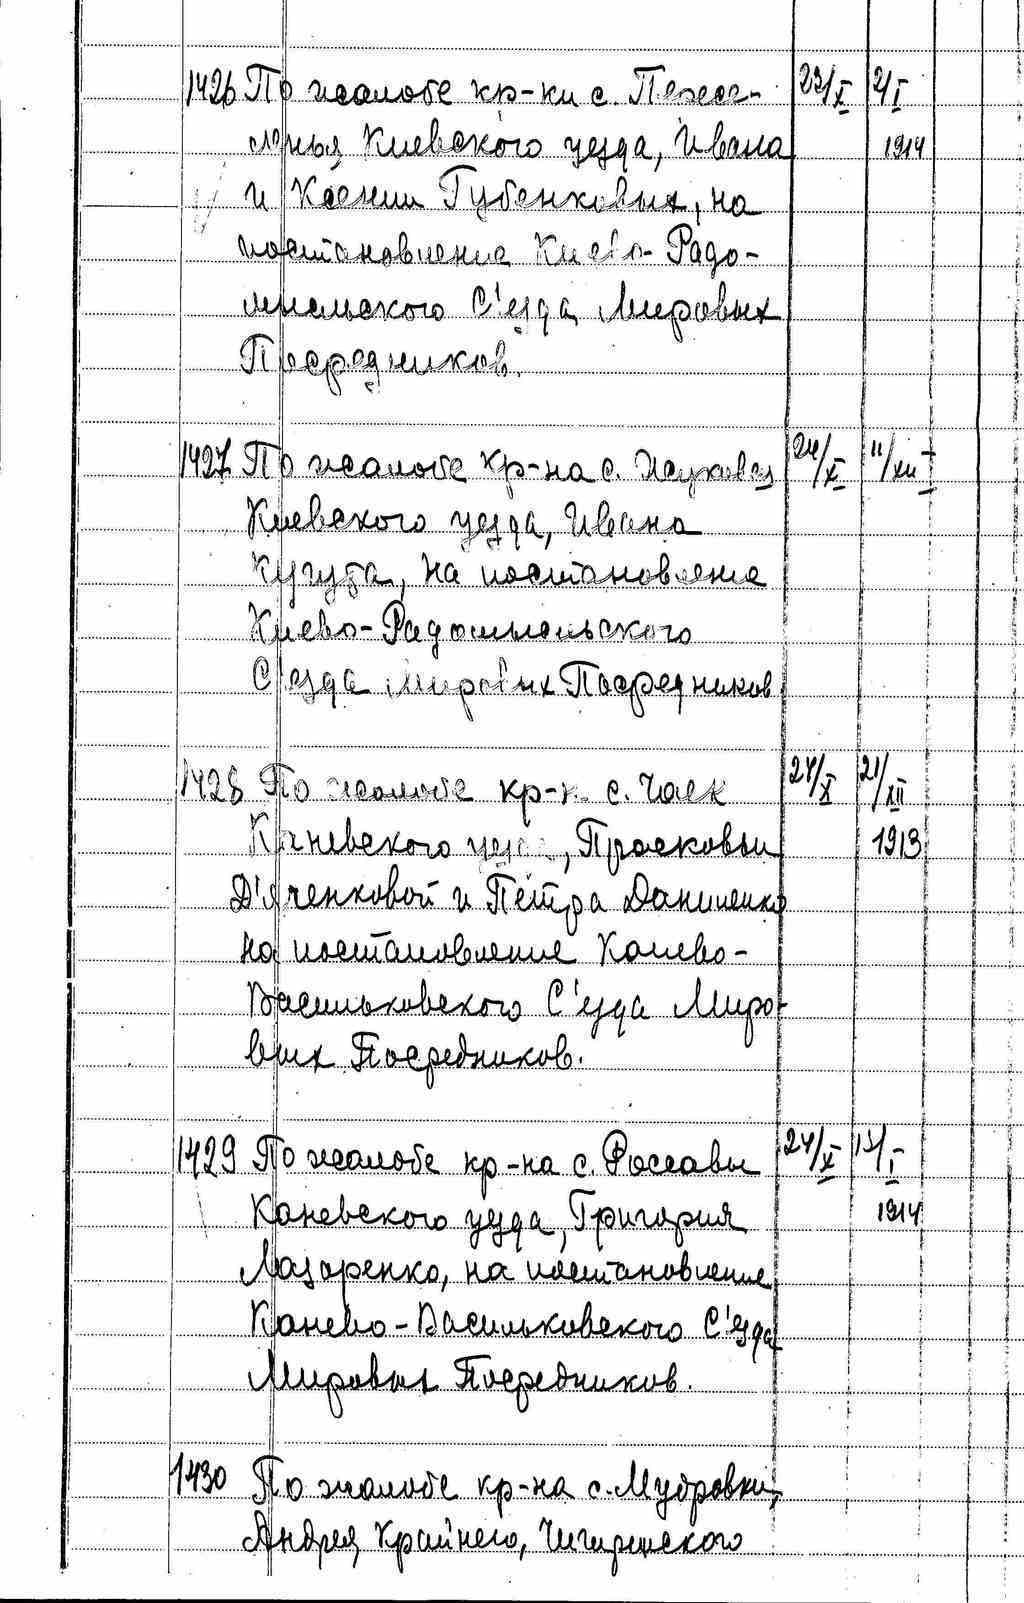 1426 По жалобе кр-ки с. 23/X 2/I
Киевского уезда, Ивана 1914
и Ксении Губенковых, на
постановление Киево-Радо-
мысльского С'езда Мировых
Посредников.
1427 По жалобе кр-на с. 24/X 11/XII
Киевского уезда, Ивана
на постановление
Киево-Радомысльского
С'езда Мировых Посредников
1428 По жалобе кр-к с. Чаек 24/X 21/XII
Каневского уезда, Просковьи 1913
Д'яченковой и Петра Даниленко
на постановление Канево-
Васильковского С'езда Миро-
вых Посредников.
1429 По жалобе кр-на с. Россавы 24/X 13/I
Каневского уезда, Григория 1914
Лазаренко, на постановление
Канево-Васильковского С'езда
Мировых Посредников.
1430 По жалобе кр-на с. Мудровки,
Андрея Крайнего, Чигиринского